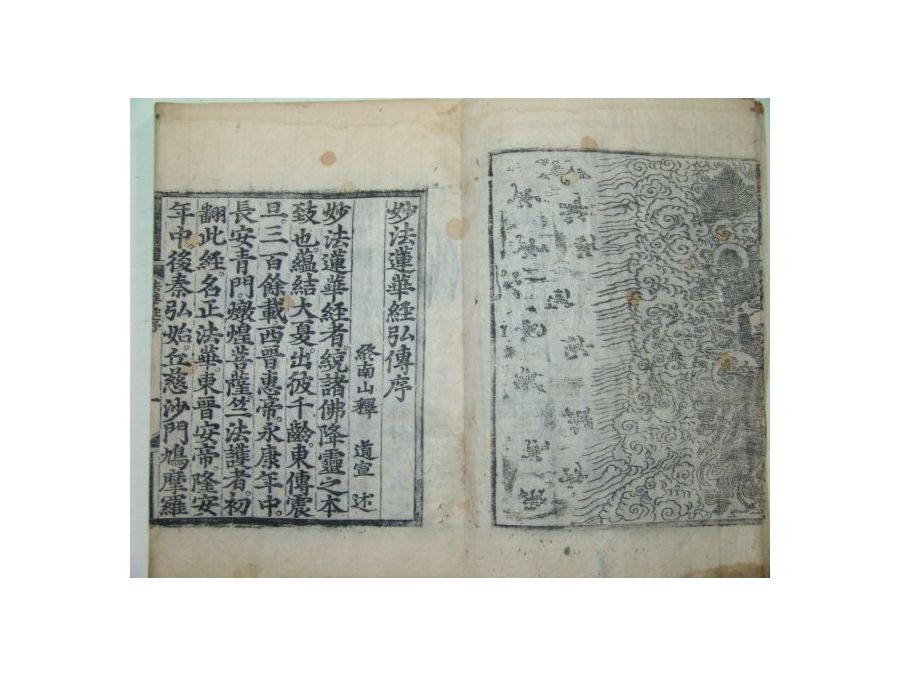 妙法蓮華經弘傳序
終南山釋 道宣 述
妙法蓮華經者。統諸佛降靈之本
致也。蘊結大夏。出彼千齡。東傳震
旦。三百餘載。西晉惠帝。永康年中。
長安青門。燉煌菩薩竺法護者。初
翻此經。名正法華。東晉安帝。隆安
年中。後秦弘始。丘慈沙門鳩摩羅